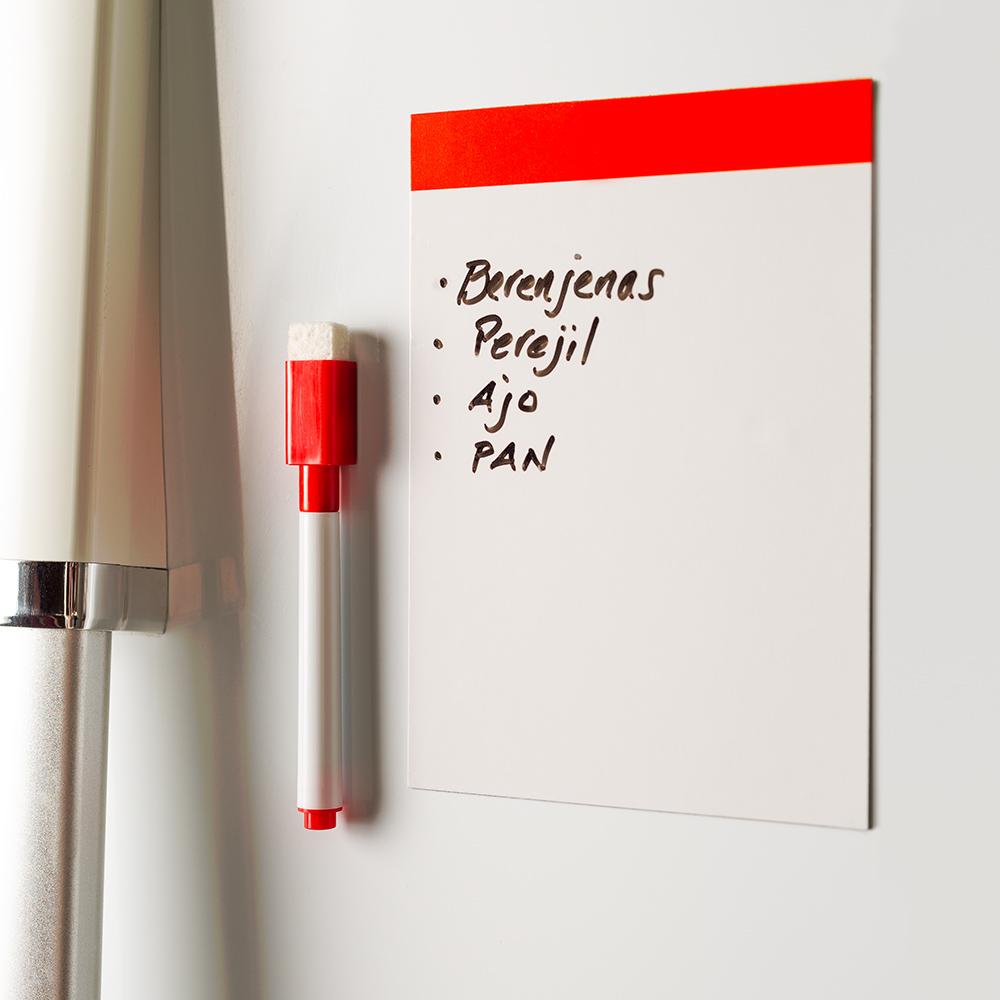 · Berenjenas
· Perejil
· Ajo
· PAN